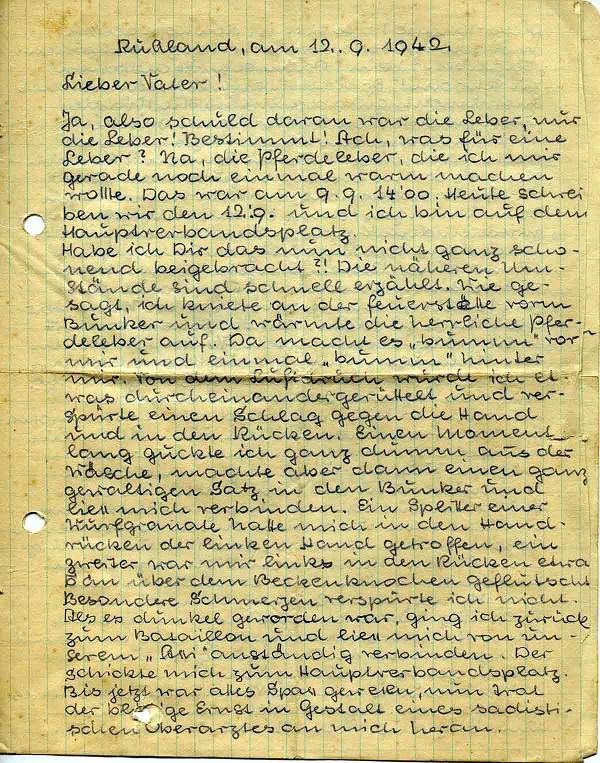 Rußland, am 12. 9. 1942.
Lieber Vater!
Ja, also schuld daran war die Leber, nur
die Leber! Bestimmt! Ach, was für eine
Leber? Na, die Pferdeleber, die ich mir
gerade noch einmal warm machen
wollte. Das war am 9. 9. 14ʰ00. Heute schrei
ben wir den 12. 9. und ich bin auf dem
Hauptverbandsplatz.
Habe ich Dir das nun nicht ganz scho-
nend beigebracht?! Die näheren Um-
stände sind schnell erzählt. Wie ge-
sagt, ich kniete an der Feuerstelle vorm
Bunker und wärmte die herrliche Pfer-
deleber auf. Da macht es „bumm" vor
mir und einmal „bumm" hinter
mir. Von dem Luftdruck wurde ich et
was durcheinandergerüttelt und ver-
spürte einen Schlag gegen die Hand
und in den Rücken. Einen Moment
lang guckte ich ganz dumm aus der
Wäsche, machte aber dann einen ganz
gewaltigen Satz in den Bunker und
ließ mich verbinden. Ein Splitter einer
Wurfgranate hatte mich in den Hand-
rücken der linken Hand getroffen, ein
zweiter war mir links in den Rücken etwa
cm über dem Beckenknochen geflutscht
Besondere Schmerzen verspürte ich nicht.
Als es dunkel geworden war, ging ich zurück
zum Bataillon und ließ mich von un-
serem anständig verbinden. Der
schickte mich zum Hauptverbandsplatz.
Bis jetzt war alles Spaß gewesen, nun trat
der blutige Ernst in Gestalt eines sadisti-
schen Oberarztes an mich heran.